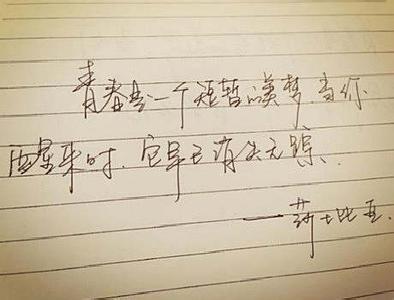 青春是一个短暂的美梦,当你
醒来时,它早已消失无踪、
——莎士比亚.